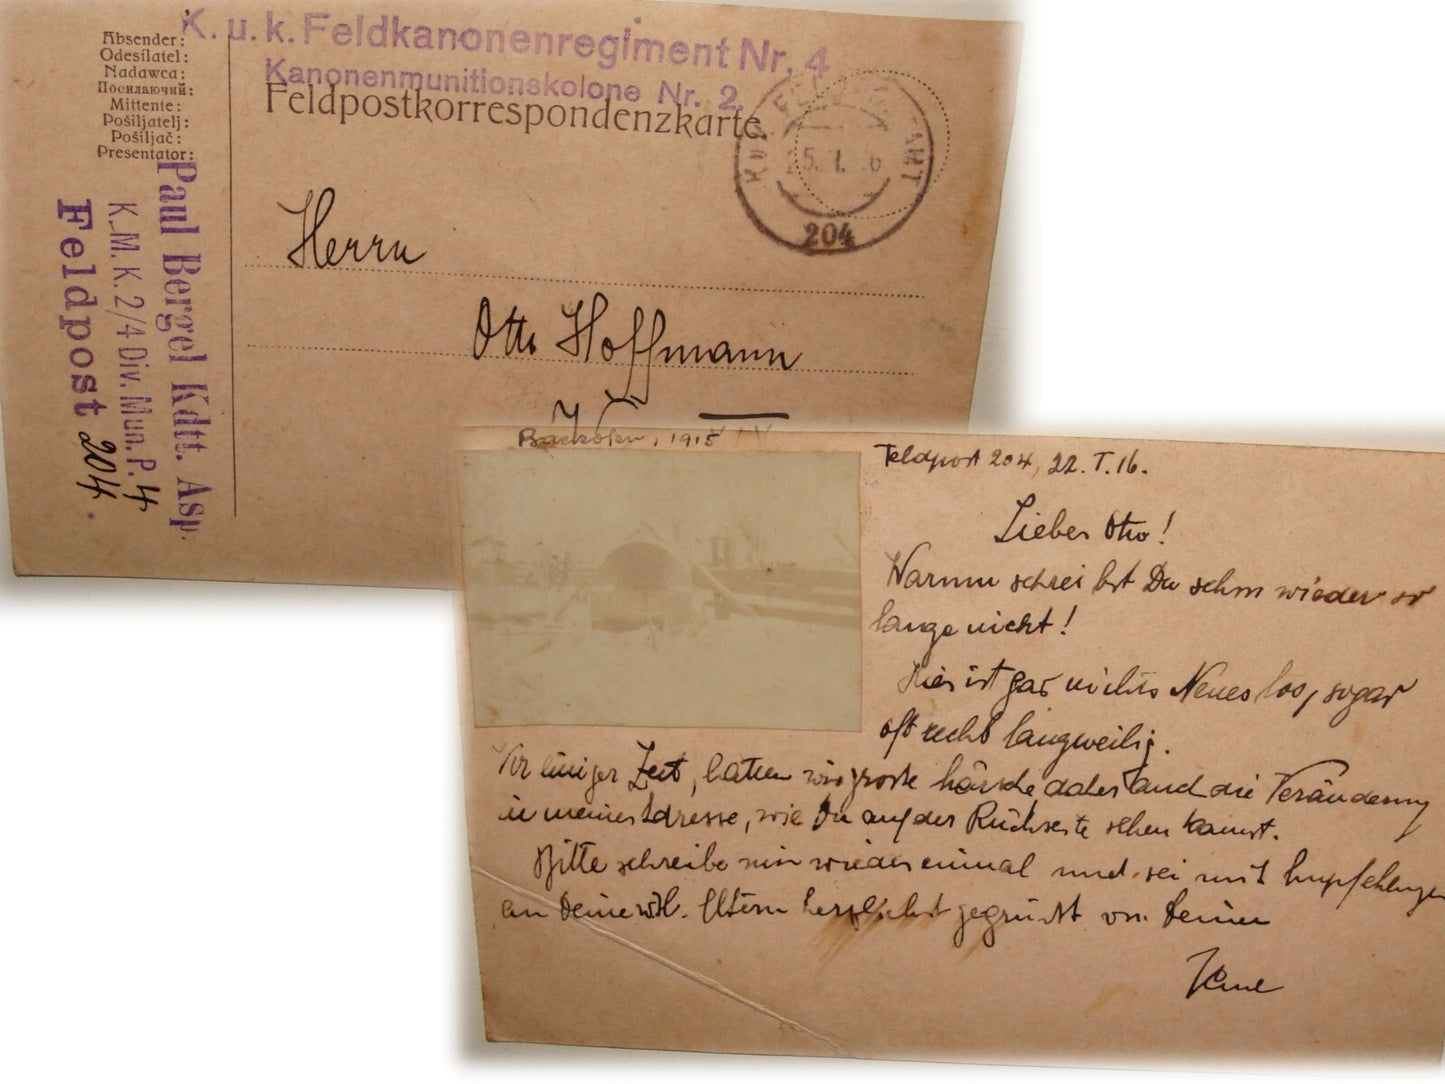 K. u. k. Feldkanonenregiment Nr. 4
Kanonenmunitionskolone Nr. 2.
Feldpostkorrespondenzkarte
Absender:
Odesílatel:
Nadawca:
Посилаючий:
Mittente:
Pošiljatelj:
Pošiljač:
Presentator:
Paul Bergel Kdtt. Asp.
K. M. K. 2/4 Div. Mun. P. 4
Feldpost 204.
204
Herrn
Otto Hoffmann
1915
Feldpost 204, 22.I.16.
Lieber Otto!
Warum schreibst Du schon wieder so
lange nicht!
Hier ist gar nichts Neues los, sogar
oft recht langweilig.
Vor einiger Zeit, hatten wir große daher auch die Veränderung
in meiner Adresse, wie Du auf der Rückseite sehen kannst.
Bitte schreibe mir wieder einmal und sei mit Empfehlungen
an Deine Eltern herzlichst gegrüßt von Deinem